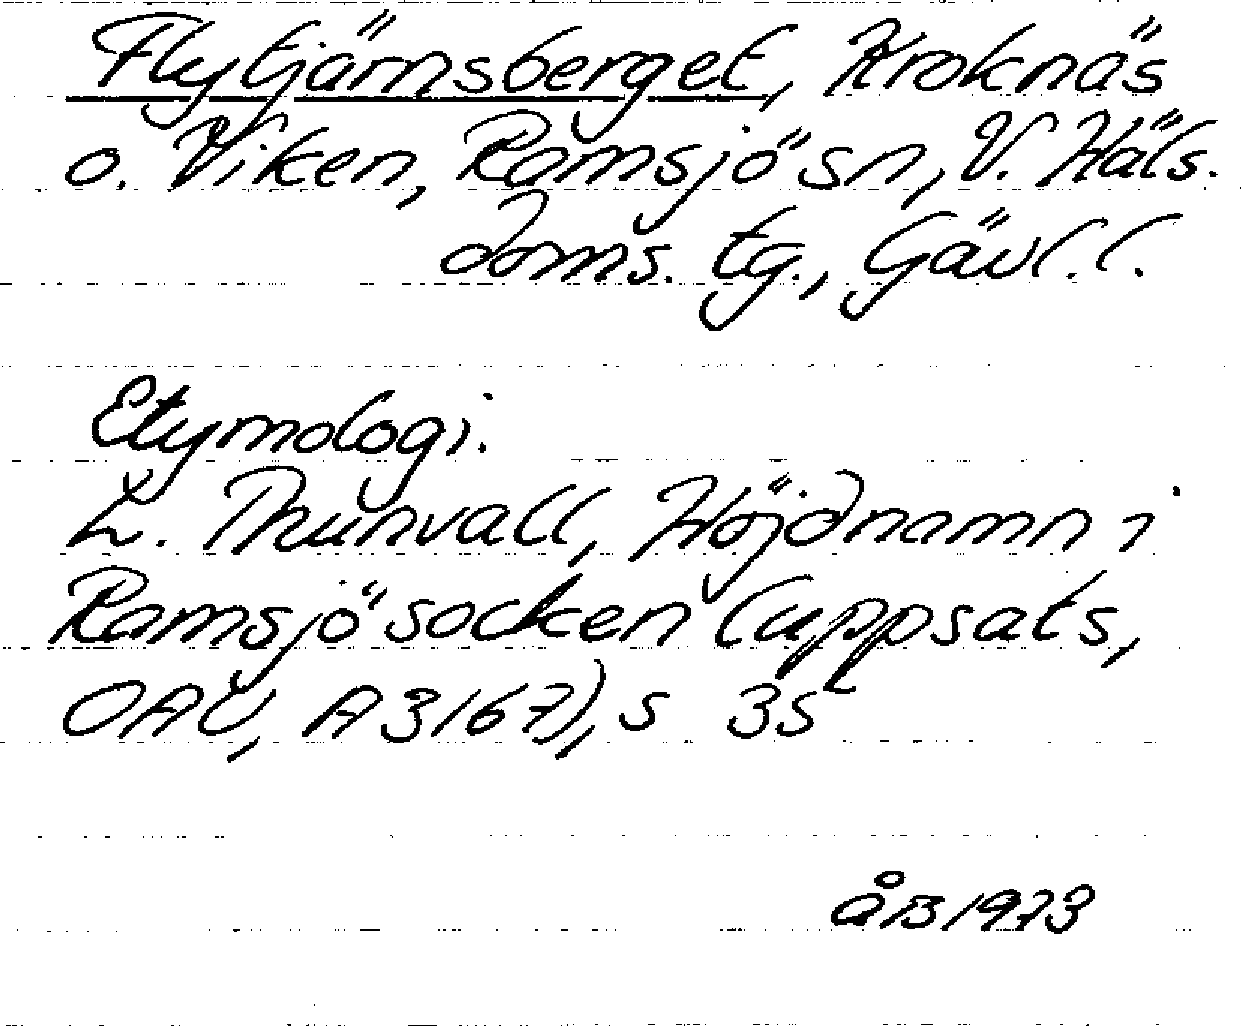 Flytjärnsberget, Kroknäs
o. Viken, Ramsjö sn, V. Häls.
doms. tg., Gävl. l.
Etymologi.
L. Thunvall, Höjdnamn i
Ramsjö socken (uppsats,
OAU, A3167), s 35
åB 1973